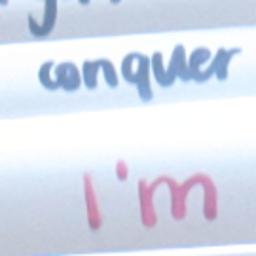 conquer
I'm